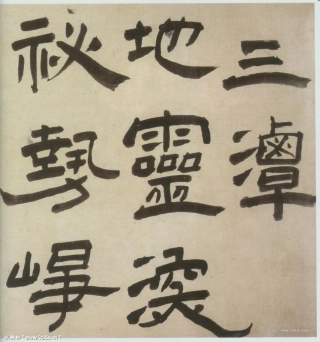 三潭
地靈
祕勢崢